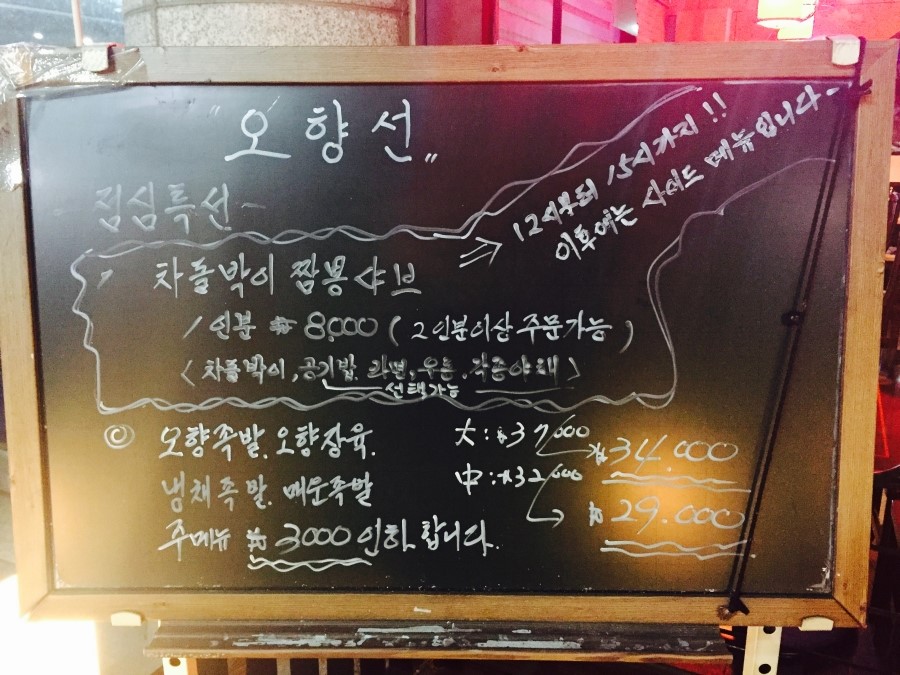 "오향선"
점심특선~
12시부터 15시까지!!
이후에는 사이드 메뉴입니다~
차돌박이 짬뽕샤브
1인분 ₩8,000 (2인분이상 주문가능)
<차돌박이, 공기밥, 라면, 우동, 각종야채>
선택가능
◎ 오향족발. 오향장육. 大:₩37,000 → ₩34.000
냉채족발. 매운족발 中:₩32,000 → ₩29.000
주메뉴 ₩3000 인하 합니다.